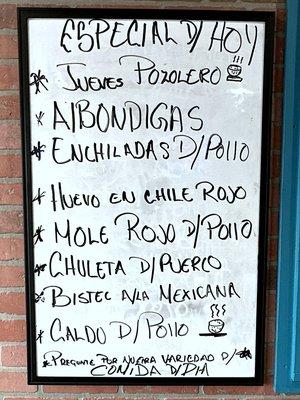 ESPECIAL D/ HOY
JUEVES POZOLERO
AlBONDIGAS
ENCHILADAS D/POllO
HUEVO EN CHILE ROJO
MOLE ROJO D/POllO
CHULETA D/PUERCO
BISTEC A/LA MEXICANA
CALDO D/POllO
PREGUNTE POR NUESTRA VARIEDAD D/
COMIDA D/DIA